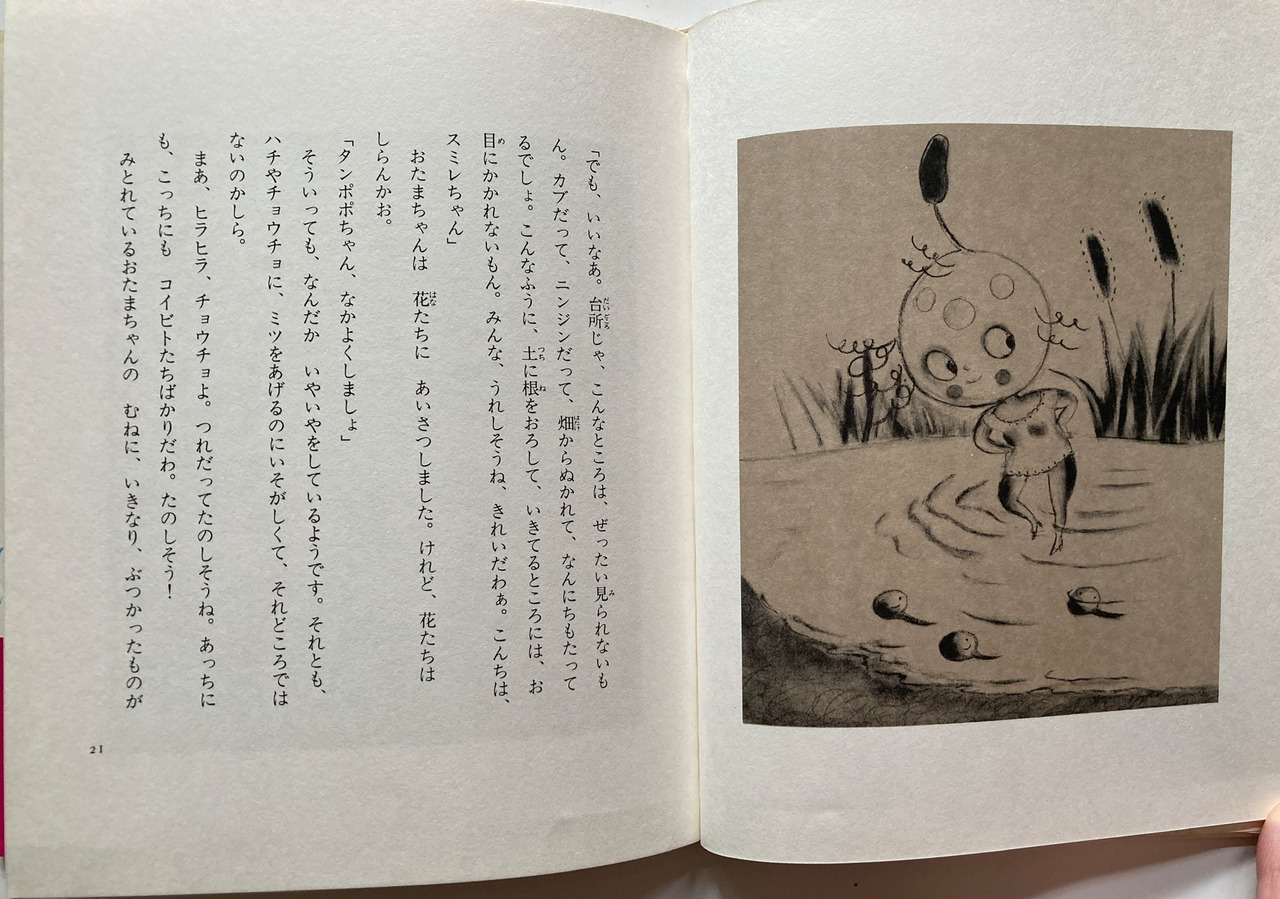 「でも、いいなあ。台所じゃ、こんなところは、ぜったい見られないも
ん。カブだって、ニンジンだって、畑からぬかれて、なんにちもたって
るでしょ。こんなふうに、土に根をおろして、いきてるところには、お
目にかかれないもん。みんな、うれしそうね、きれいだわぁ。こんちは、
スミレちゃん」
おたまちゃんは　花たちに　あいさつしました。けれど、花たちは
しらんかお。
「タンポポちゃん、なかよくしましょ」
そういっても、なんだか　いやいやをしているようです。それとも、
ハチやチョウチョに、ミツをあげるのにいそがしくて、それどころでは
ないのかしら。
まあ、ヒラヒラ、チョウチョよ。つれだってたのしそうね。あっちに
も、こっちにも　コイビトたちばかりだわ。たのしそう！
みとれているおたまちゃんの　むねに、いきなり、ぶつかったものが
21